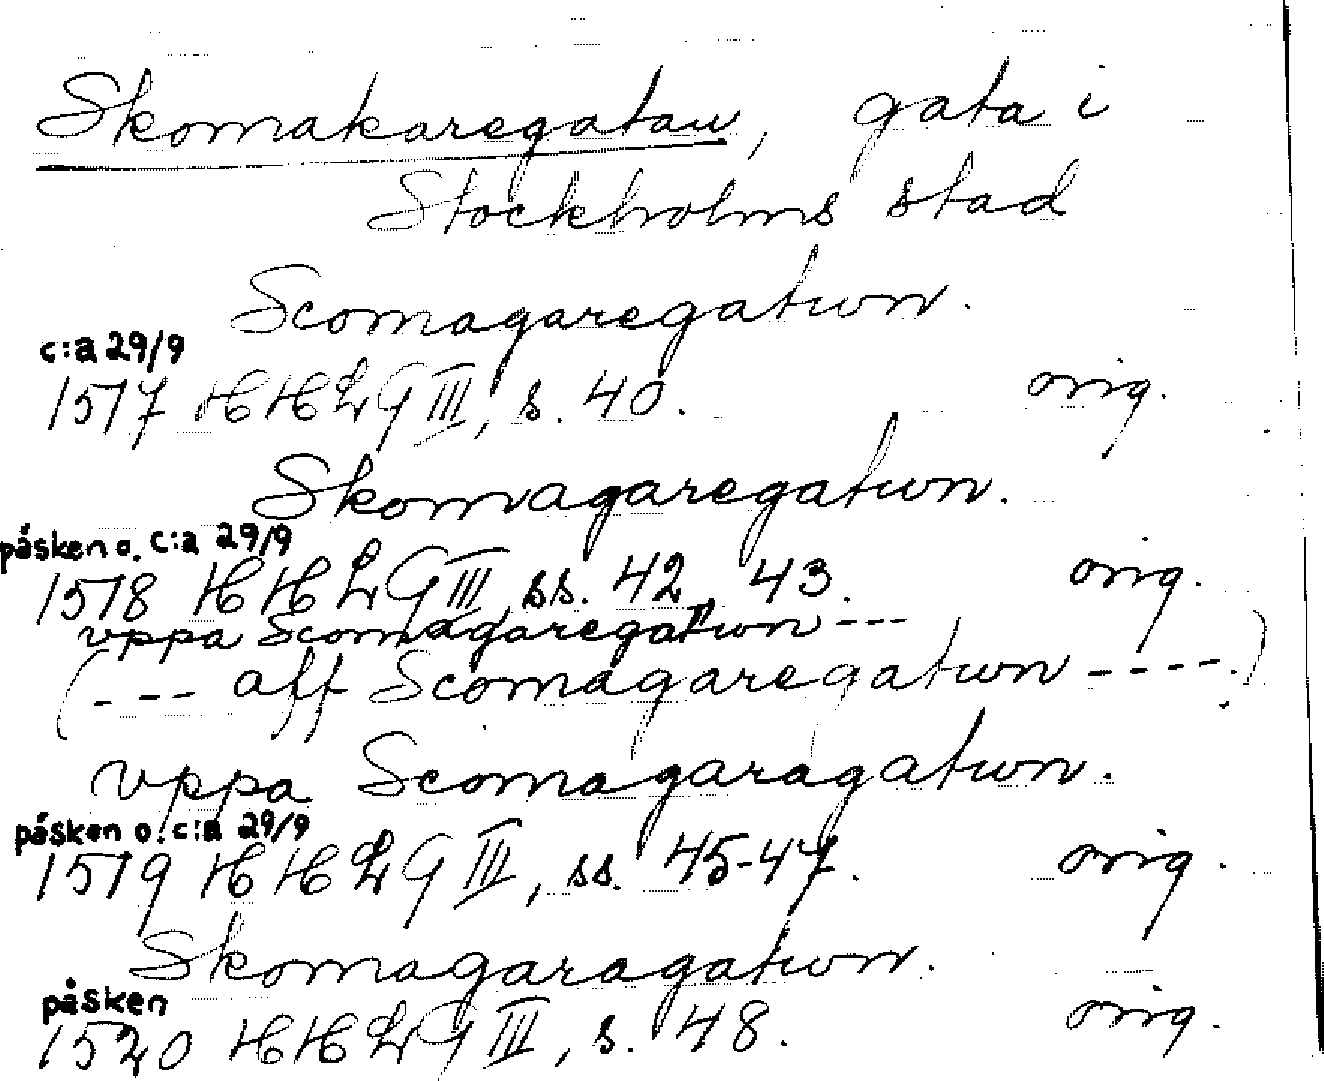 Skomakaregatan, gata i
Stockholms stad
Scomagaregatwn.
c:a 29/9
1517 HHLG III, s. 40. orig.
Skomagaregatwn.
påsken o. c:a 29/9
1518 HHLG III, ss. 42, 43. orig.
vppa Scomagaregatwn ---
(--- aff Scomagaregatwn ----.)
vppa Scomagaragatwn.
påsken o. c:a 29/9
1519 HHLG III, ss. 45-47. orig.
Skomagaragatwn.
påsken
1520 HHLG III, s. 48. orig.